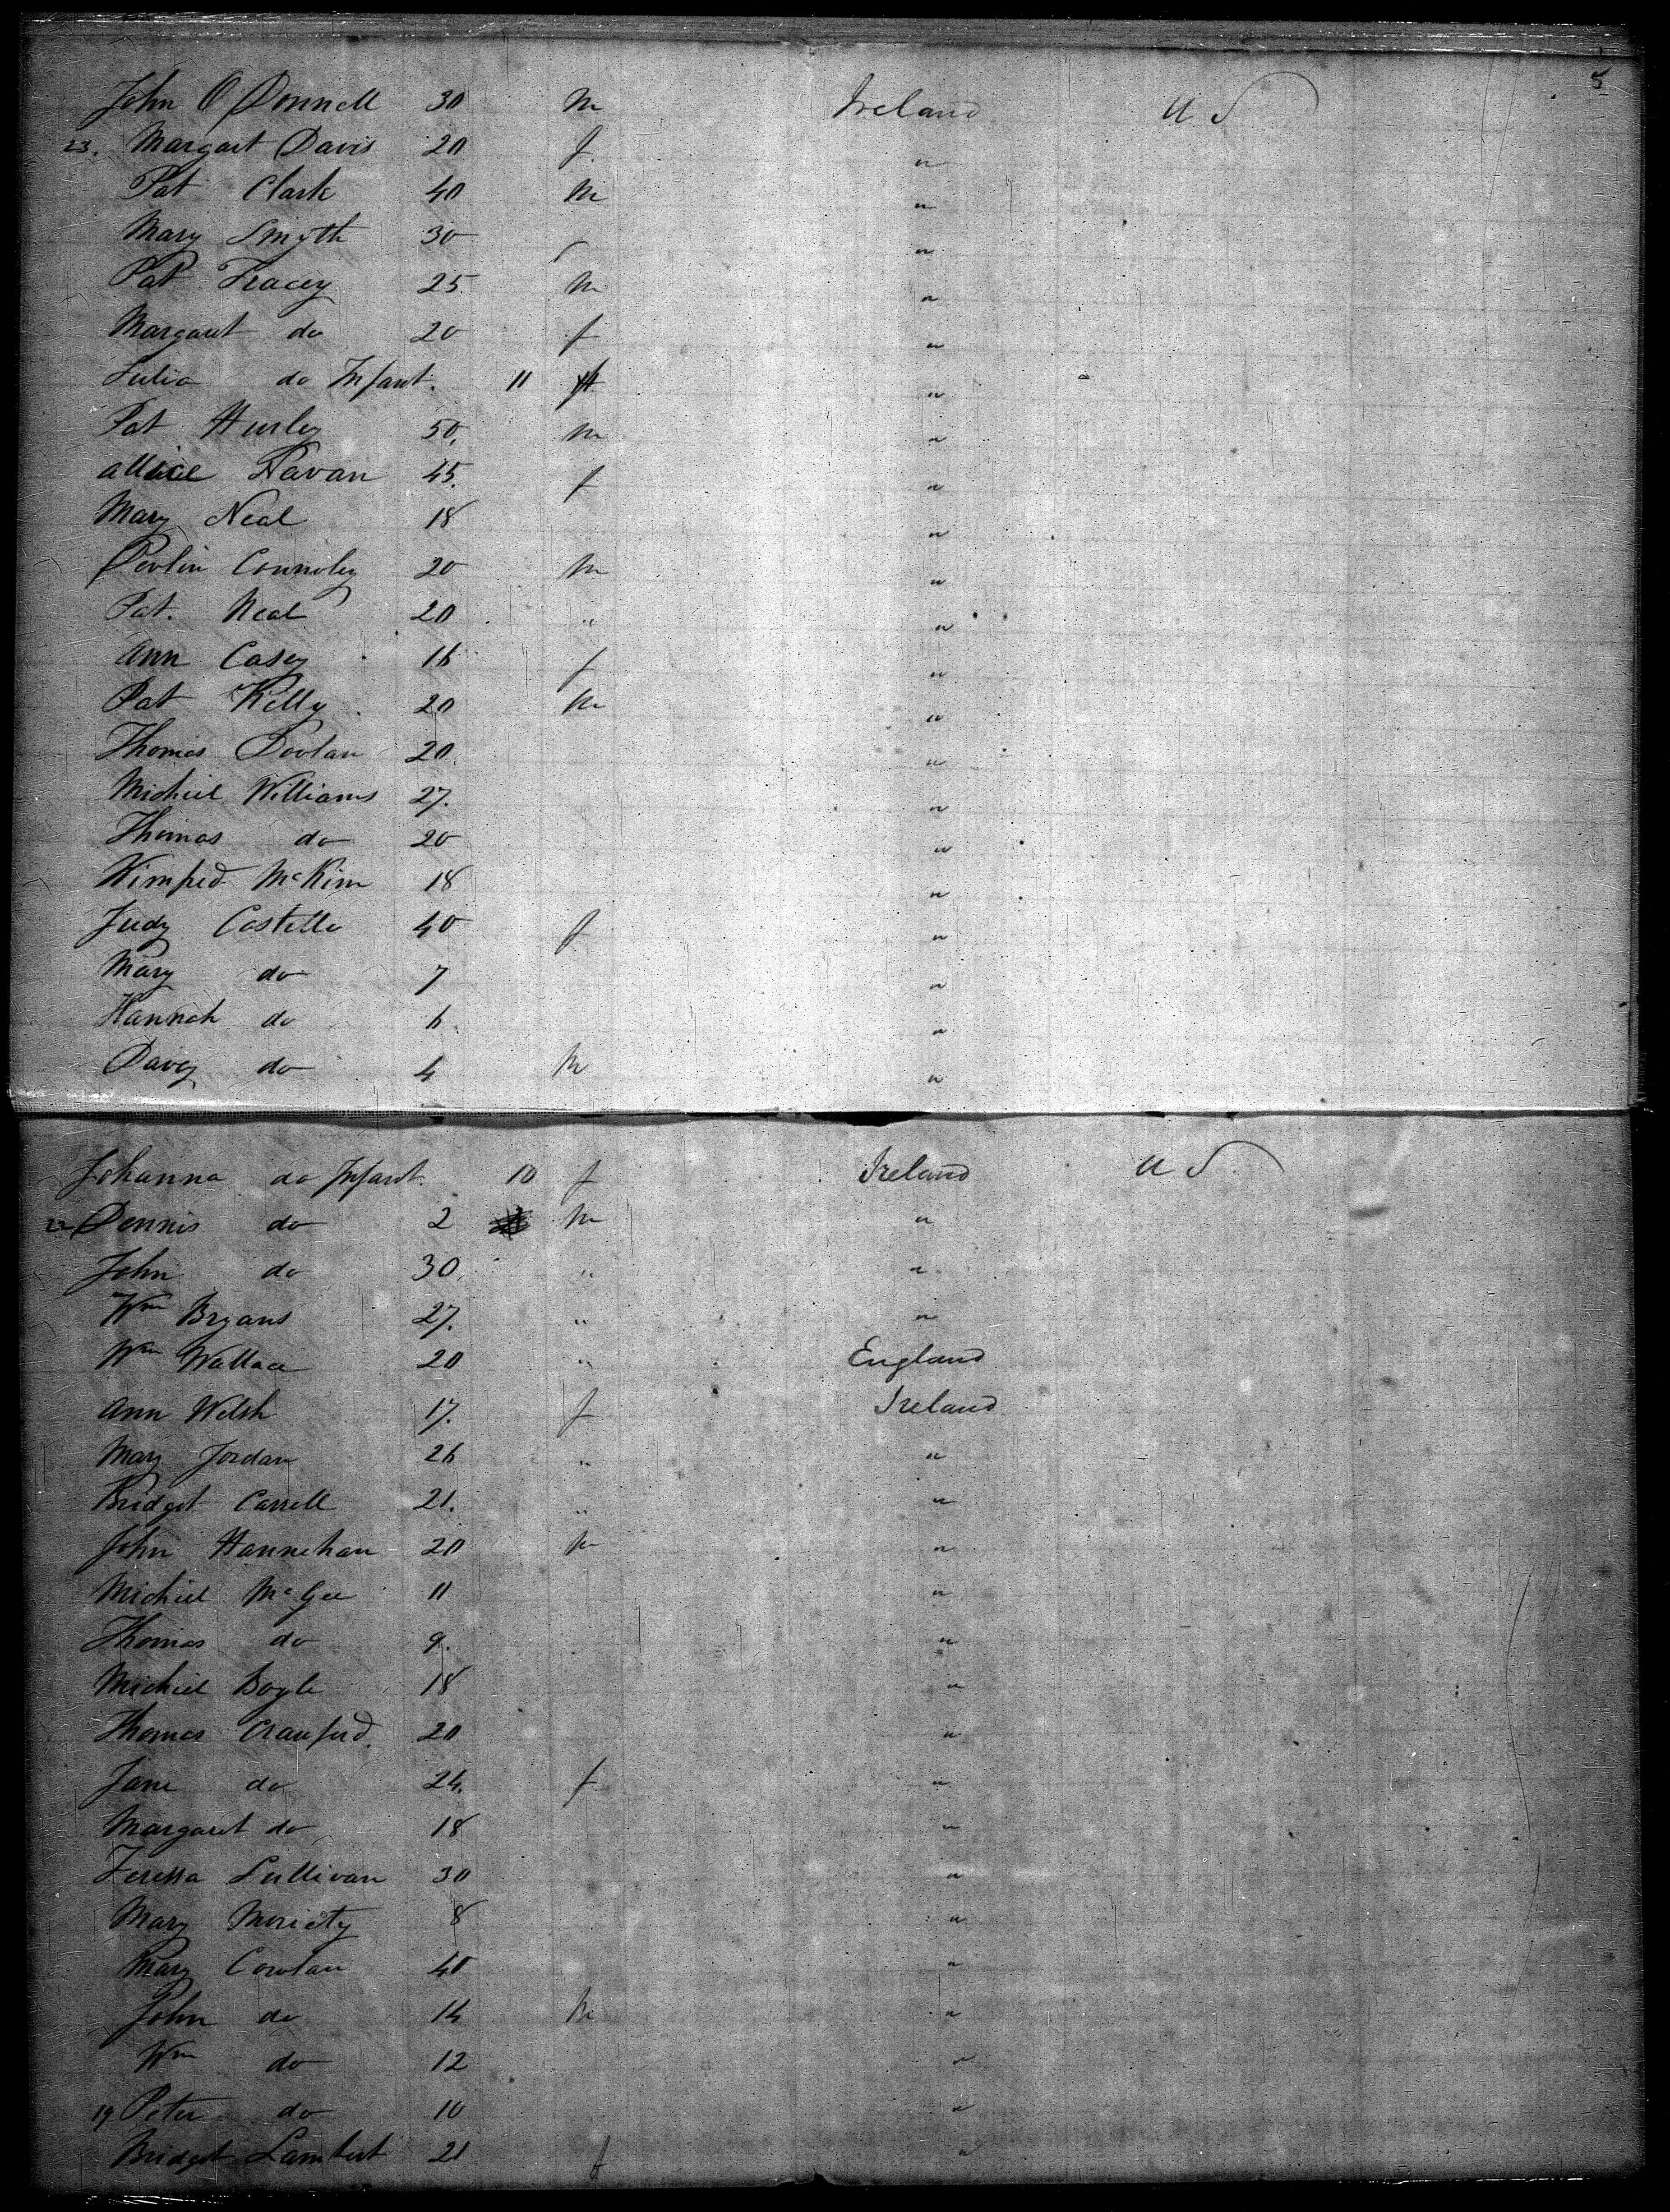 5
John O Donnell 30 m Ireland U S
23. Margart Davis 20 f. "
Pat Clark 40 m "
Mary Smyth 30 f "
Pat Tracey 25. m "
Margaret do 20 f "
Julia do Infant. 11 f "
Pat Hurley 50. m "
allice 45. f "
Mary Neal 18 "
Connoley 20 m "
Pat. Neal 20 " "
Ann Casey 16 f "
Pat Kelly 20 m "
Thomas Doolan 20. "
Michiel Williams 27. "
Thomas do 20 "
Winifred McKim 18 "
Judy Costello 40 f "
Mary do 7 "
Hannah do 6. "
Davey do 4 m "
Johanna do Infant. 10 f Ireland U S.
22 Dennis do 2 m "
John do 30. " "
Wm Bryans 27. " "
Wm Wallace 20 " England
Ann Welsh 17. f Ireland
Mary Jordan 26 " "
Bridget Carrell 21. " "
John Hannehan 20 m "
Michiel McGee 11 "
Thomas do 9. "
Michiel Boyle 18 "
Thomas Crauford. 20 "
Jane do 24. f "
Margaret do 18 "
Teressa Sullivan 30 "
Mary Moriety 8 "
Mary Cowlan 40 "
John do 14 m "
Wm do 12 "
19 Peter do 10 "
Bridget Lambert 21 f "